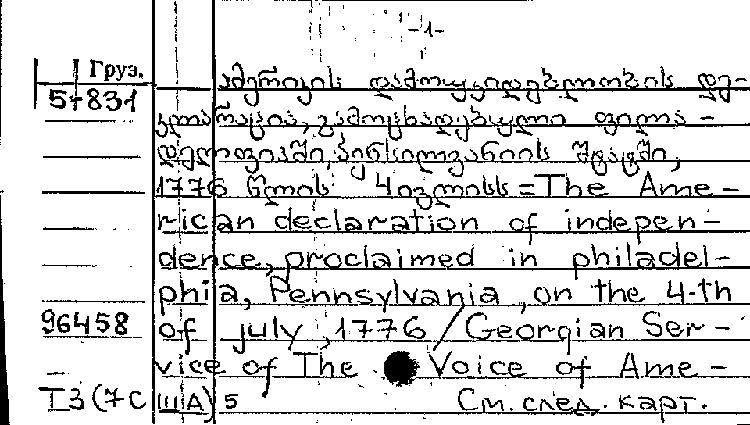 -1-
Груз.
57831
ამერიკის დამოუკიდებლობის დე-
კლარაცია, გამოცხადებული ფილა-
დელფიაში, პენსილვანიის შტატში,
1776 წლის 4 ივლისს = The Ame-
rican declaration of indepen-
dence, proclaimed in philadel-
phia, Pennsylvania, on the 4-th
96458 of july, 1776 / Georgian Ser-
vice of The Voice of Ame-
ТЗ(7С ША) 5 См. след. карт.